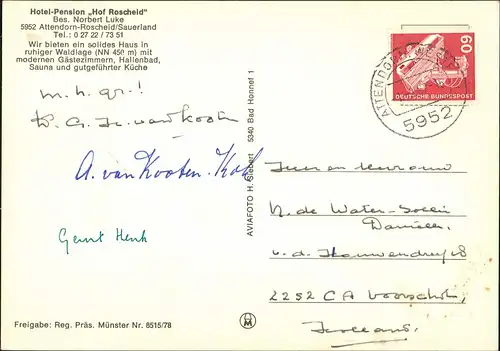 Hotel-Pension „Hof Roscheid"
Bes. Norbert Luke
5952 Attendorn-Roscheid/Sauerland
Tel.: 0 27 22 / 73 51
Wir bieten ein solides Haus in
ruhiger Waldlage (NN 458 m) mit
modernen Gästezimmern, Hallenbad,
Sauna und gutgeführter Küche
m.h.gr.!
A. van Kooten-Kok
Gerrit Henk
Freigabe: Reg. Präs. Münster Nr. 8515/78
AVIAFOTO H. Siebert 5340 Bad Honnef 1
60
DEUTSCHE BUNDESPOST
ATTENDORN
5952
N. de Water-
2252 CA Voorschoten,
Holland.